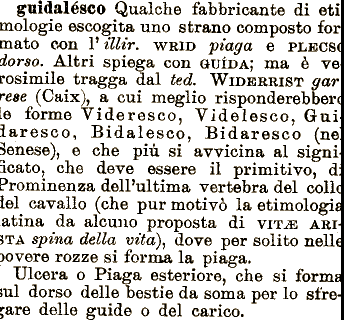 guidalésco Qualche fabbricante di eti
mologie escogita uno strano composto for
mato con l' illir. WRID piaga e PLECSO
dorso. Altri spiega con GUÍDA; ma è ve
rosimile tragga dal ted. WIDERRIST gar
rese (Caix), a cui meglio risponderebbero
le forme Videresco, Videlesco, Gui
daresco, Bidalesco, Bidaresco (nel
Senese), e che più si avvicina al signi
ficato, che deve essere il primitivo, di
Prominenza dell'ultima vertebra del collo
del cavallo (che pur motivò la etimologia
latina da alcuno proposta di VITÆ ARI
STA spina della vita), dove per solito nelle
povere rozze si forma la piaga.
Ulcera o Piaga esteriore, che si forma
sul dorso delle bestie da soma per lo sfre
gare delle guide o del carico.